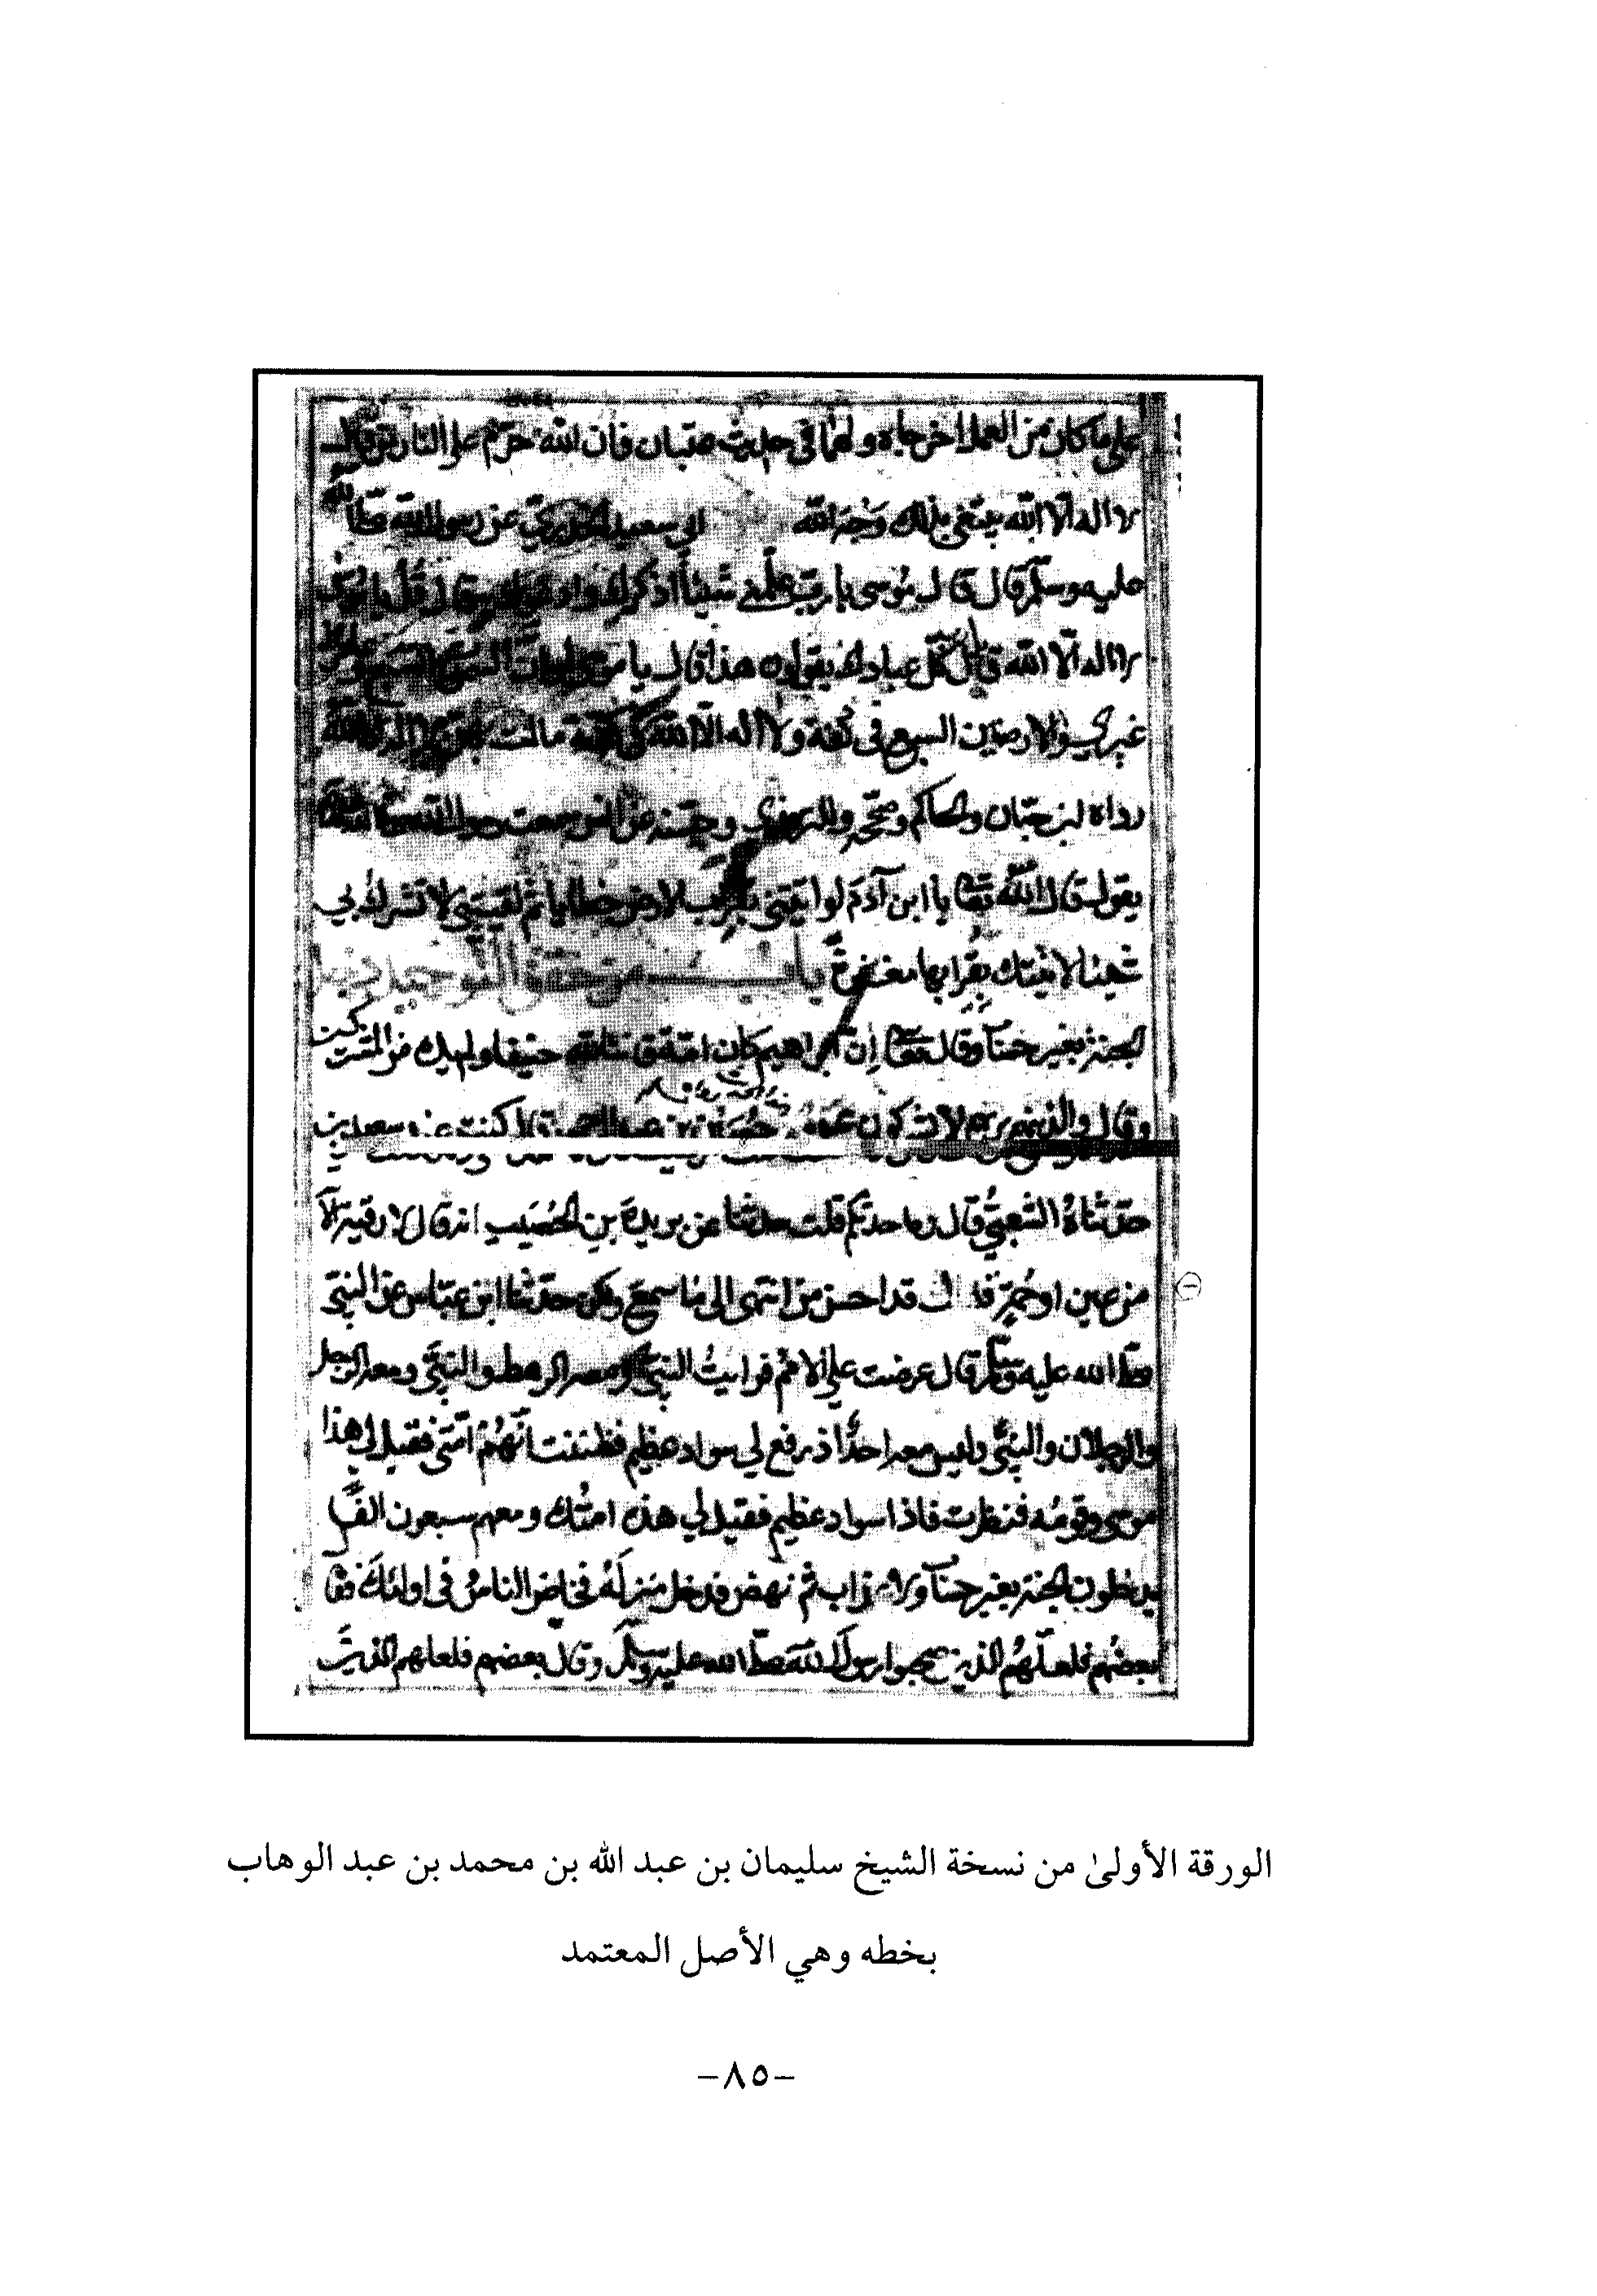 على ما كان من العمل اخرجاه ولهما في حديث عتبان فان الله حرّم على النار من قال
لا اله الا الله يبتغي بذلك وجه الله ابي سعيد الخدري عن رسول الله صلى الله
عليه وسلم قال قال موسى يا رب علمني شيئا اذكرك وادعوك به قال قل يا موسى
لا اله الا الله قال كل عبادك يقولون هذا قال يا موسى لو ان السموات السبع وعامرهن
غيري والارضين السبع في كفة ولا اله الا الله في كفة مالت بهن لا اله الا الله
رواه ابن حبان والحاكم وصححه وللترمذي وحسنه عن انس سمعت رسول الله صلى الله
يقول قال الله تعا يا ابن آدم لو اتيتني بقراب الارض خطايا ثم لقيتني لا تشرك بي
شيئا لاتيتك بقرابها مغفرة باب من حقق التوحيد دخل
الجنة بغير حساب وقال تعا إن ابراهيم كان امة قانتا لله حنيفا ولم يك من المشركين
وقال والذين هم بربهم لا يشركون عن حصين بن عبد الرحمن قال كنت عند سعيد بن
حدثناه الشعبي قال وما حدثكم قلت حدثنا عن بريدة بن الحُصَيب انه قال لا رقية الا
من عين او حُمة قال قد احسن من انتهى الى ما سمع ولكن حدثنا ابن عباس عن النبي
صلى الله عليه وسلم قال عرضت علي الامم فرايت النبي ومعه الرهط والنبي ومعه الرجل
والرجلان والنبي وليس معه احد اذ رفع لي سواد عظيم فظننت انهم امتي فقيل لي هذا
موسى وقومه فنظرت فاذا سواد عظيم فقيل لي هذه امتك ومعهم سبعون الف
يدخلون الجنة بغير حساب ولا عذاب ثم نهض فدخل منزله فخاض الناس في اولئك فقا
بعضهم فلعلهم الذين صحبوا رسول الله صلى الله عليه وسلم وقال بعضهم فلعلهم الذين
الورقة الأولىٰ من نسخة الشيخ سليمان بن عبد الله بن محمد بن عبد الوهاب
بخطه وهي الأصل المعتمد
–٨٥–